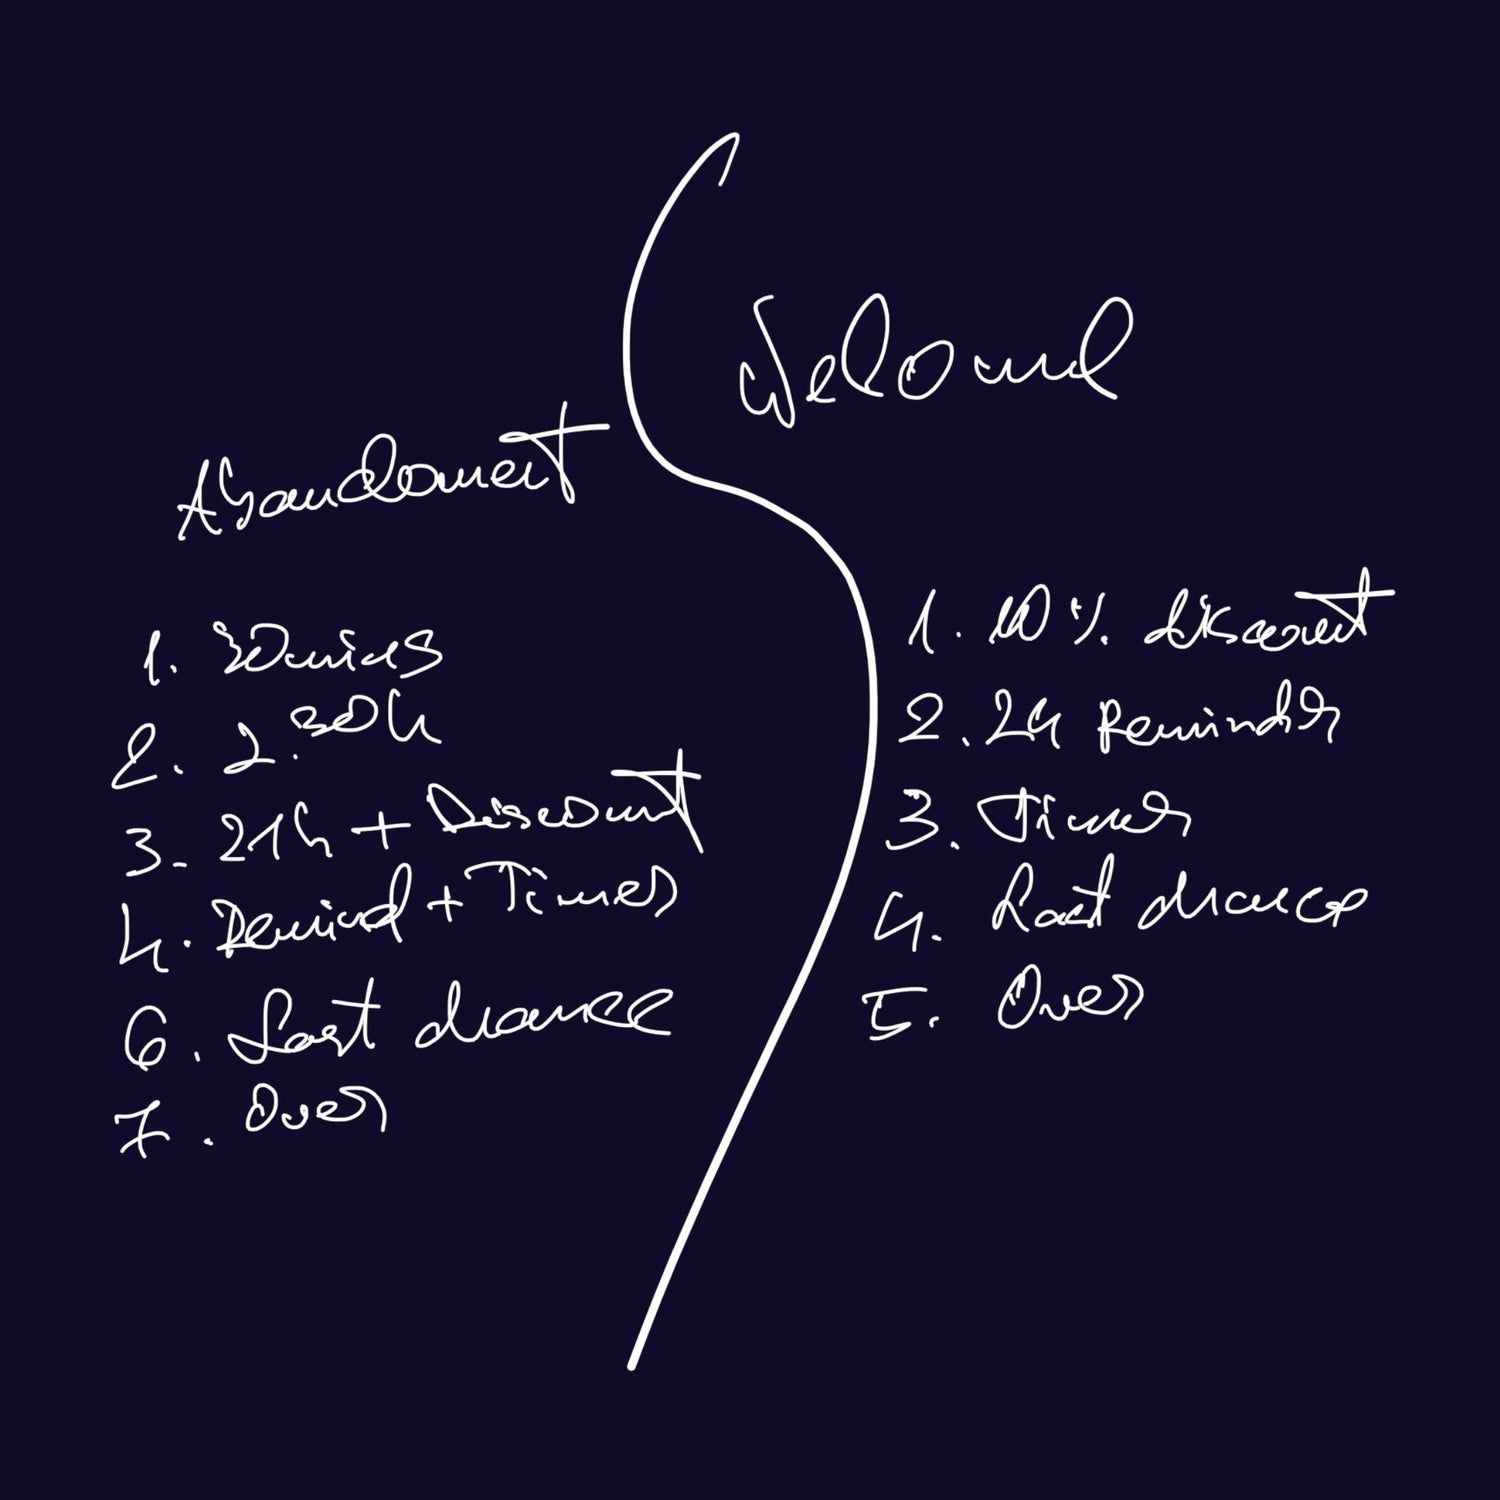 Abandoment
1. 30 mins
2. 2.30h
3. 21h + Discount
4. Remind + Timer
6. Last chance
7. Over
Welcome
1. 10% discount
2. 24 Reminder
3. Timer
4. Last chance
5. Over